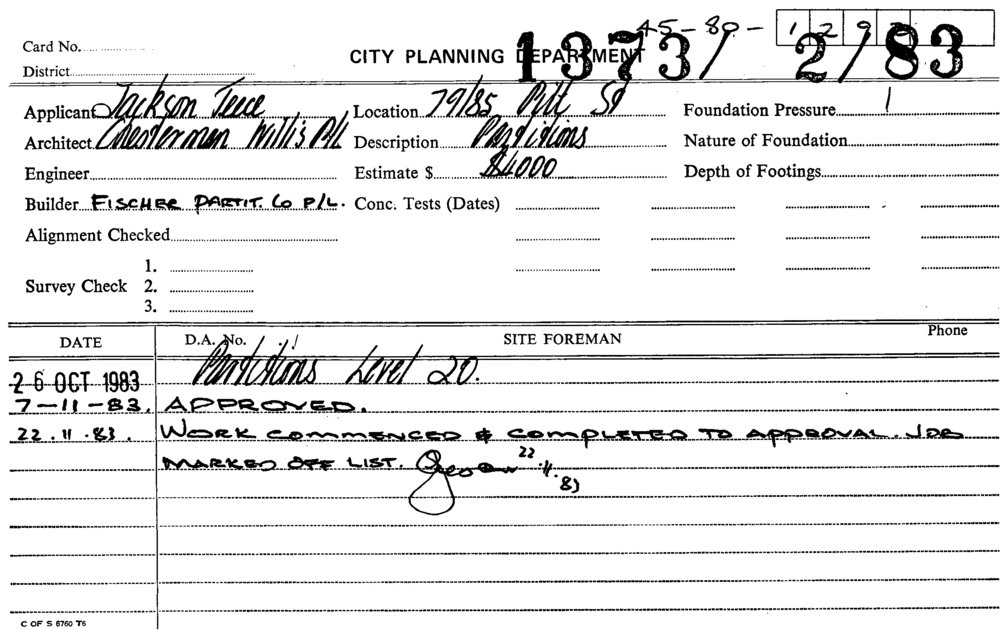 45-80-1292
Card No.
CITY PLANNING DEPARTMENT
1373/2/83
District
Applicant Jackson Teece Location 79/85 Pitt St Foundation Pressure
Architect Chesterman Willis P/L Description Partitions Nature of Foundation
Engineer Estimate $ $4000 Depth of Footings
Builder FISCHER PARTIT. Co P/L. Conc. Tests (Dates)
Alignment Checked
1.
Survey Check 2.
3.
DATE D.A. No. SITE FOREMAN Phone
26 OCT 1983 Partitions Level 20.
7-11-83. APPROVED.
22.11.83. WORK COMMENCED & COMPLETED TO APPROVAL. JOB
MARKED OFF LIST. 22.11.83
C OF S 6760 T6